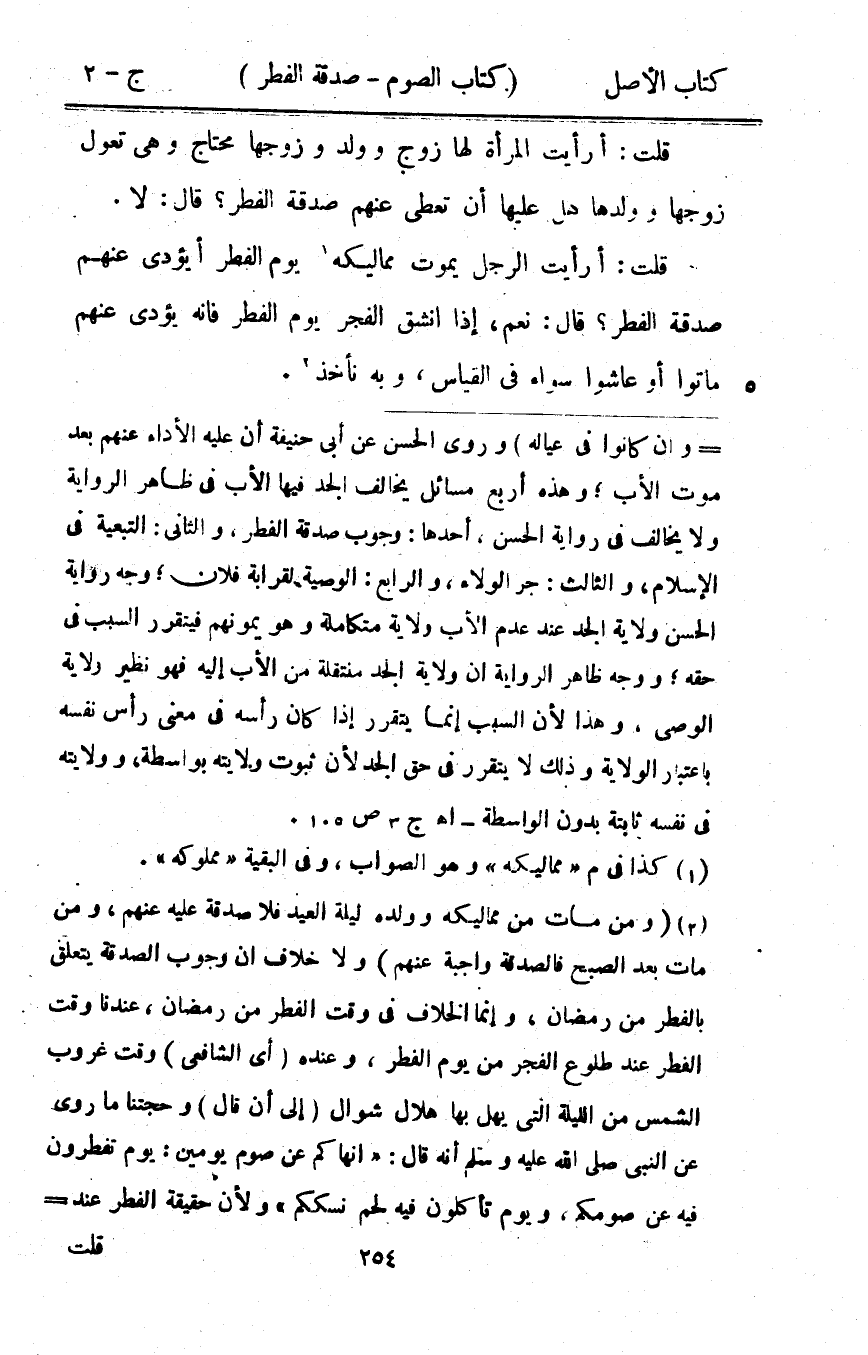 كتاب الأصل (كتاب الصوم - صدقة الفطر) ج - ٢
قلت: أ رأيت المرأة لها زوج و ولد و زوجها محتاج و هى تعول
زوجها و ولدها هل عليها أن تعطى عنهم صدقة الفطر؟ قال: لا.
قلت: أ رأيت الرجل يموت مماليكه١ يوم الفطر أ يؤدى عنهم
صدقة الفطر؟ قال: نعم، إذا انشق الفجر يوم الفطر فانه يؤدى عنهم
٥ ماتوا أو عاشوا سواء فى القياس، و به نأخذ٢.
= و ان كانوا فى عياله) و روى الحسن عن أبى حنيفة أن عليه الأداء عنهم بعد
موت الأب؛ و هذه أربع مسائل يخالف الجد فيها الأب فى ظاهر الرواية
و لا يخالف فى رواية الحسن، أحدها: وجوب صدقة الفطر، و الثانى: التبعية فى
الإسلام، و الثالث: جر الولاء، و الرابع: الوصية لقرابة فلان؛ وجه رواية
الحسن ولاية الجد عند عدم الأب ولاية متكاملة و هو يمونهم فيتقرر السبب فى
حقه؛ و وجه ظاهر الرواية ان ولاية الجد منتقلة من الأب إليه فهو نظير ولاية
الوصى، و هذا لأن السبب إنما يتقرر إذا كان رأسه فى معنى رأس نفسه
باعتبار الولاية و ذلك لا يتقرر فى حق الجد لأن ثبوت ولايته بواسطة، و ولايته
فى نفسه ثابتة بدون الواسطة - اه ج ٣ ص ١٠٥.
(١) كذا فى م «مماليكه» و هو الصواب، و فى البقية «مملوكه».
(٢) (و من مات من مماليكه و ولده ليلة العيد فلا صدقة عليه عنهم، و من
مات بعد الصبح فالصدقة واجبة عنهم) و لا خلاف ان وجوب الصدقة يتعلق
بالفطر من رمضان، و إنما الخلاف فى وقت الفطر من رمضان، عندنا وقت
الفطر عند طلوع الفجر من يوم الفطر، و عنده (أى الشافعى) وقت غروب
الشمس من الليلة التى يهل بها هلال شوال (إلى أن قال) و حجتنا ما روى
عن النبى صلى الله عليه و سلم أنه قال: «انهاكم عن صوم يومين: يوم تفطرون
فيه عن صومكم، و يوم تأكلون فيه لحم نسككم» و لأن حقيقة الفطر عند =
٢٥٤ قلت